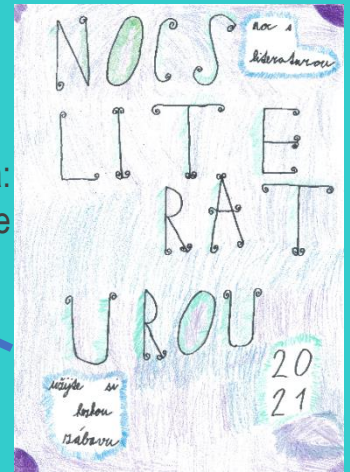 NOC S
noc s
literaturou
LITE
RAT
UROU
užijte si
20
21
zábavu